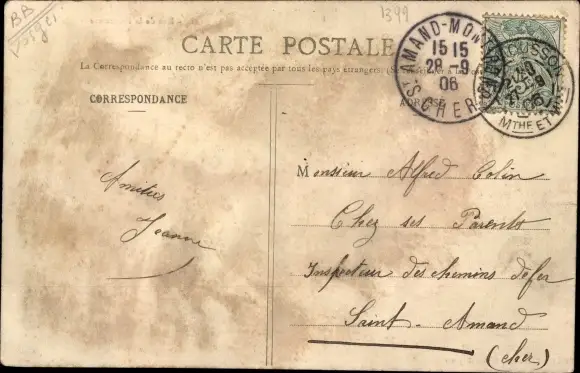 BB
1399
CARTE POSTALE
La Correspondance au recto n'est pas acceptée par tous les pays étrangers
CORRESPONDANCE
ADRESSE
ST AMAND-MON
15 15
28 -9
06
CHER
MOUSSON
MTHE ET
Amitiés
Jeanne
Monsieur Alfred Colin
Chez ses Parents
Inspecteur des chemins de fer
Saint-Amand
(cher)